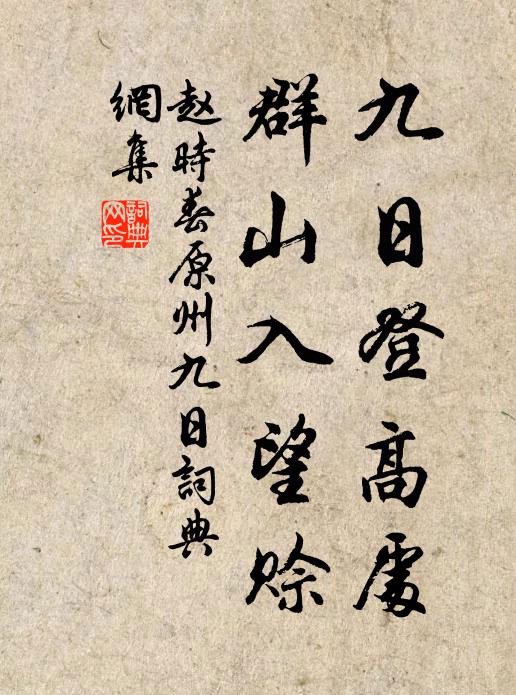 九日登高處
群山入望賒
赵時春原州九日詞典
網集
詞典
网印